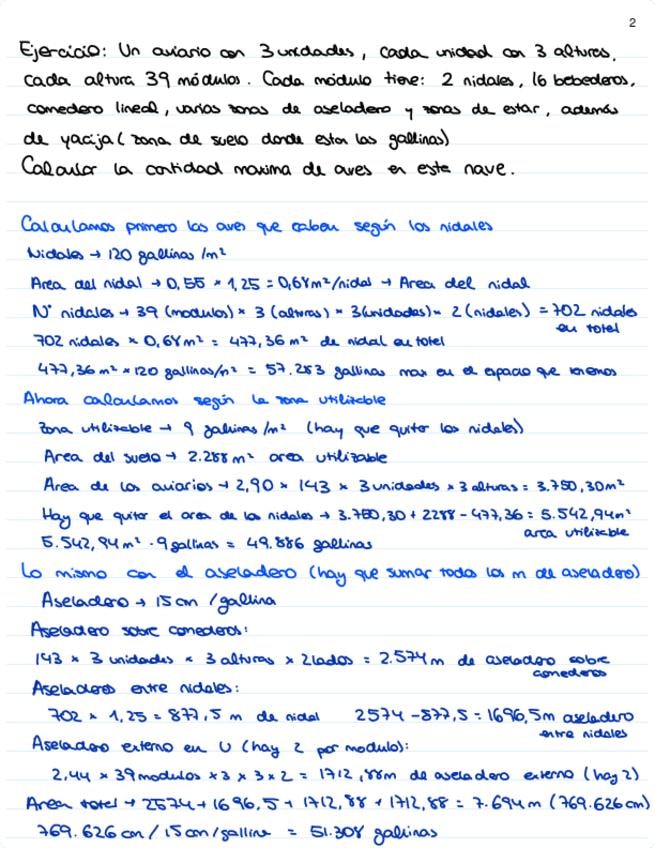 2
Ejercicio: Un aviario con 3 unidades, cada unidad con 3 alturas,
cada altura 39 módulos. Cada módulo tiene: 2 nidales, 16 bebederos,
comedero lineal, varias zonas de aseladero y zonas de estar, además
de yacija (zona de suelo donde estan las gallinas)
Calcular la cantidad maxima de aves en este nave.
Calculamos primero las aves que caben según los nidales
Nidales → 120 gallinas /m²
Area del nidal → 0,55 * 1,25 = 0,68m²/nidal → Area del nidal
Nº nidales → 39 (modulos) * 3 (alturas) * 3(unidades) * 2 (nidales) = 702 nidales
en total
702 nidales * 0,68m² = 477,36 m² de nidal en total
477,36 m² * 120 gallinas/m² = 57.283 gallinas max en el espacio que tenemos
Ahora calculamos según la zona utilizable
Zona utilizable → 9 gallinas /m² (hay que quitar los nidales)
Area del suelo → 2.288 m² area utilizable
Area de los aviarios → 2,90 * 143 * 3 unidades * 3 alturas = 3.750,30m²
Hay que quitar el area de los nidales → 3.750,30 + 2288 - 477,36 = 5.542,94m²
area utilizable
5.542,94 m² · 9 gallinas = 49.886 gallinas
Lo mismo con el aseladero (hay que sumar todos los m de aseladero)
Aseladero → 15 cm /gallina
Aseladero sobre comederos:
143 * 3 unidades * 3 alturas * 2 lados = 2.574 m de aseladero sobre
comederos
Aseladeros entre nidales:
702 * 1,25 = 877,5 m de nidal 2574 - 877,5 = 1696,5m aseladero
entre nidales
Aseladero externo en U (hay 2 por modulo):
2,44 * 39 modulos * 3 * 3 * 2 = 1712,88m de aseladero externo (hay 2)
Area total → 2574 + 1696,5 + 1712,88 + 1712,88 = 7.694 m (769.626 cm)
769.626 cm / 15 cm/galline = 51.308 gallinas